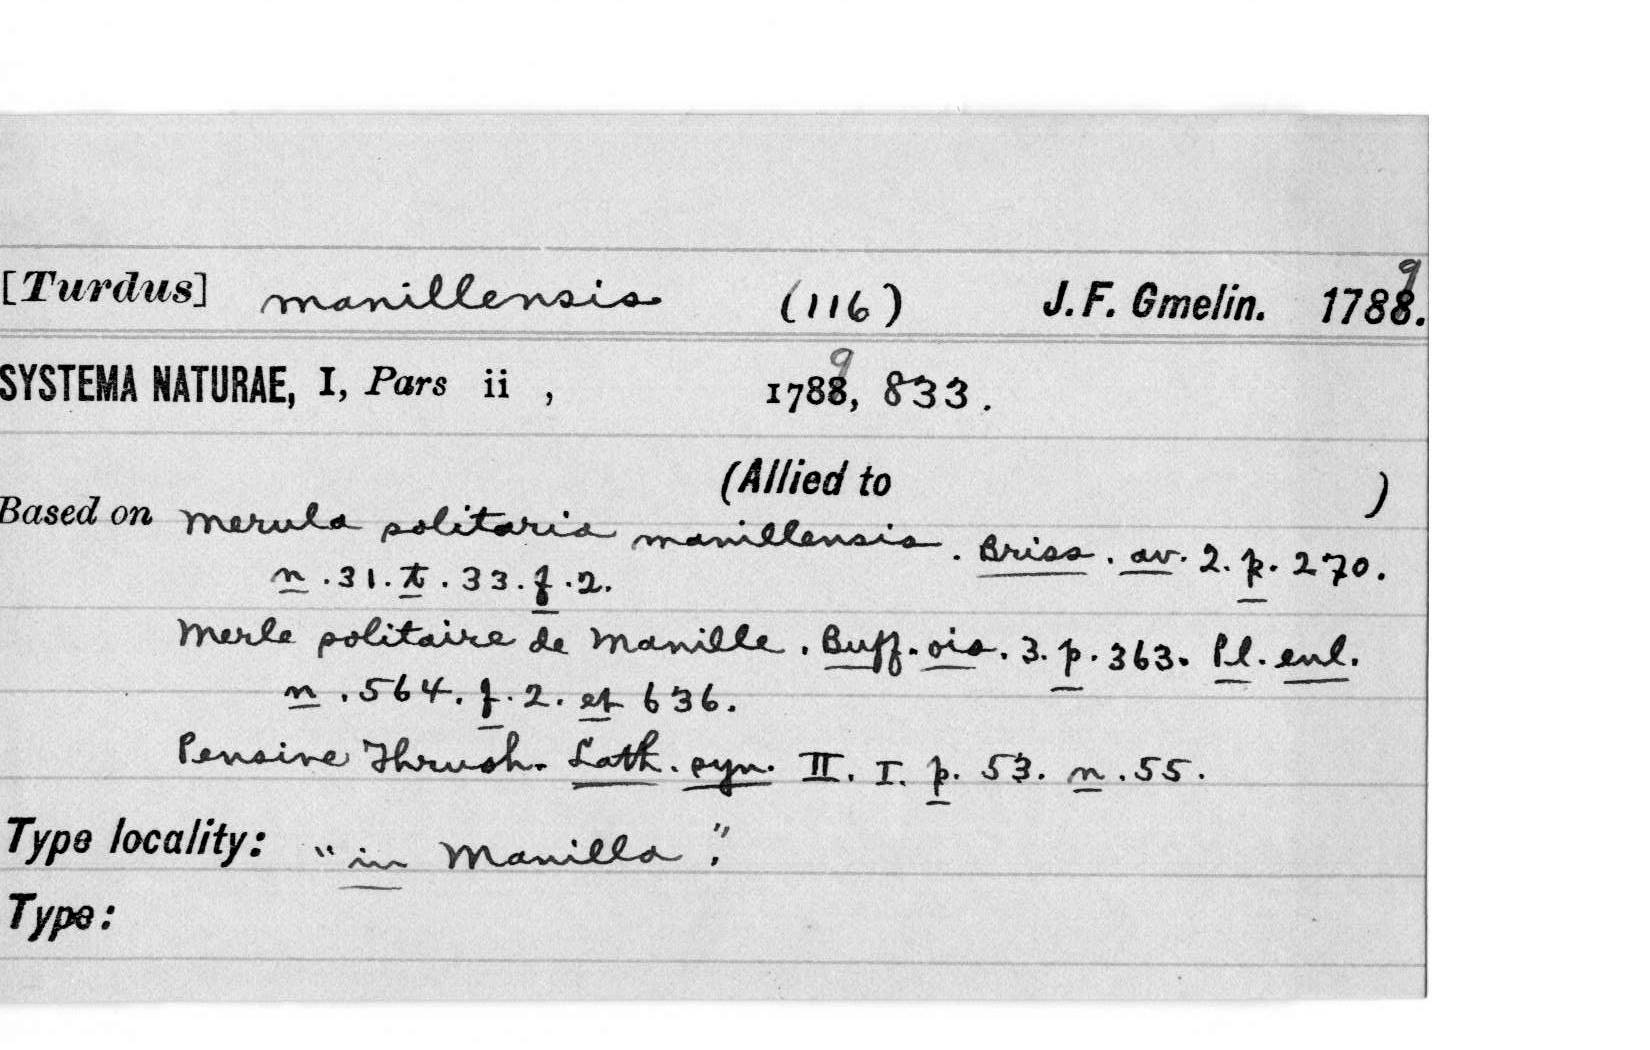 [Turdus] manillensis (116) J. F. Gmelin. 17889.
SYSTEMA NATURAE, I, Pars ii , 17889, 833.
(Allied to )
Based on Merula solitaria manillensis. Briss. av. 2. p. 270.
n. 31. t. 33. f. 2.
Merle solitaire de Manille. Buff. ois. 3. p. 363. Pl. enl.
n. 564. f. 2. et 636.
Pensive Thrush. Lath. syn. II. I. p. 53. n. 55.
Type locality: "in Manilla".
Type: